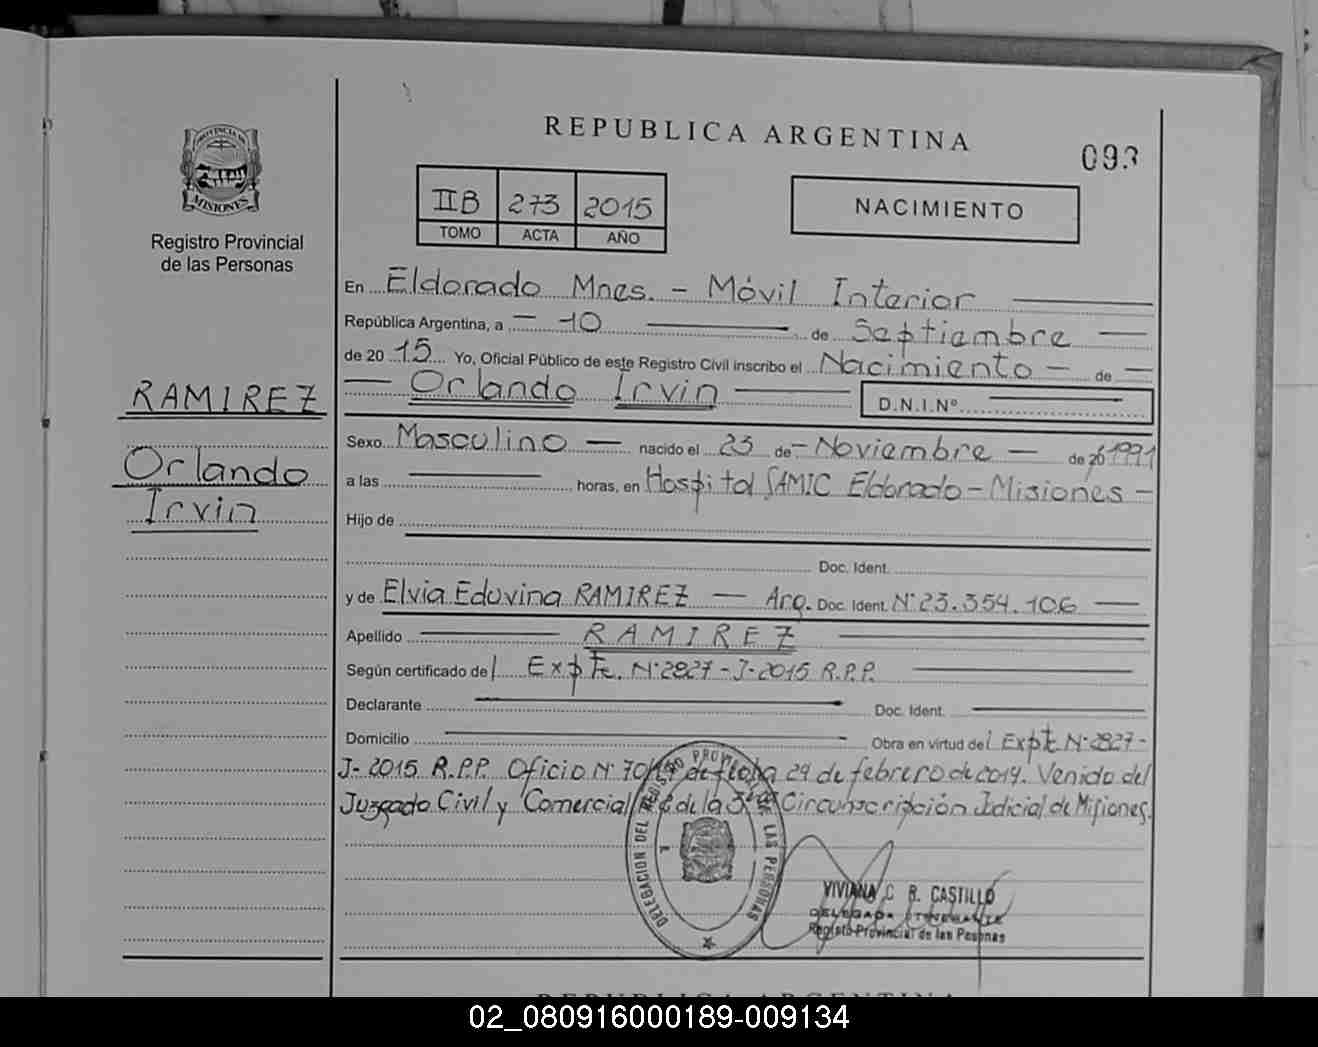 PROVINCIA DE
MISIONES
Registro Provincial
de las Personas
REPUBLICA ARGENTINA
093
IIB 273 2015
TOMO ACTA AÑO
NACIMIENTO
En Eldorado Mnes. - Móvil Interior
República Argentina, a - 10 de Septiembre
de 20 15 Yo, Oficial Público de este Registro Civil inscribo el Nacimiento - de
Orlando Irvin D.N.I.Nº
RAMIREZ
Orlando
Irvin
Sexo Masculino - nacido el 23 de - Noviembre - de 20 1991
a las horas, en Hospital SAMIC Eldorado - Misiones -
Hijo de
Doc. Ident.
y de Elvia Eduvina RAMIREZ - Arg. Doc. Ident. Nº 23.354.106
Apellido RAMIREZ
Según certificado del Expte. Nº 2827 - J - 2015 R.P.P.
Declarante Doc. Ident.
Domicilio Obra en virtud del Expte Nº 2827 -
J - 2015 R.P.P. Oficio Nº de fecha 24 de febrero de 2014. Venido del
Juzgado Civil y Comercial de la Circunscripción Judicial de Misiones.
DELEGACION DEL REGISTRO PROVINCIAL DE LAS PERSONAS
VIVIANA C. R. CASTILLO
DELEGADA ITINERANTE
Registro Provincial de las Personas
REPUBLICA ARGENTINA
02_080916000189-009134